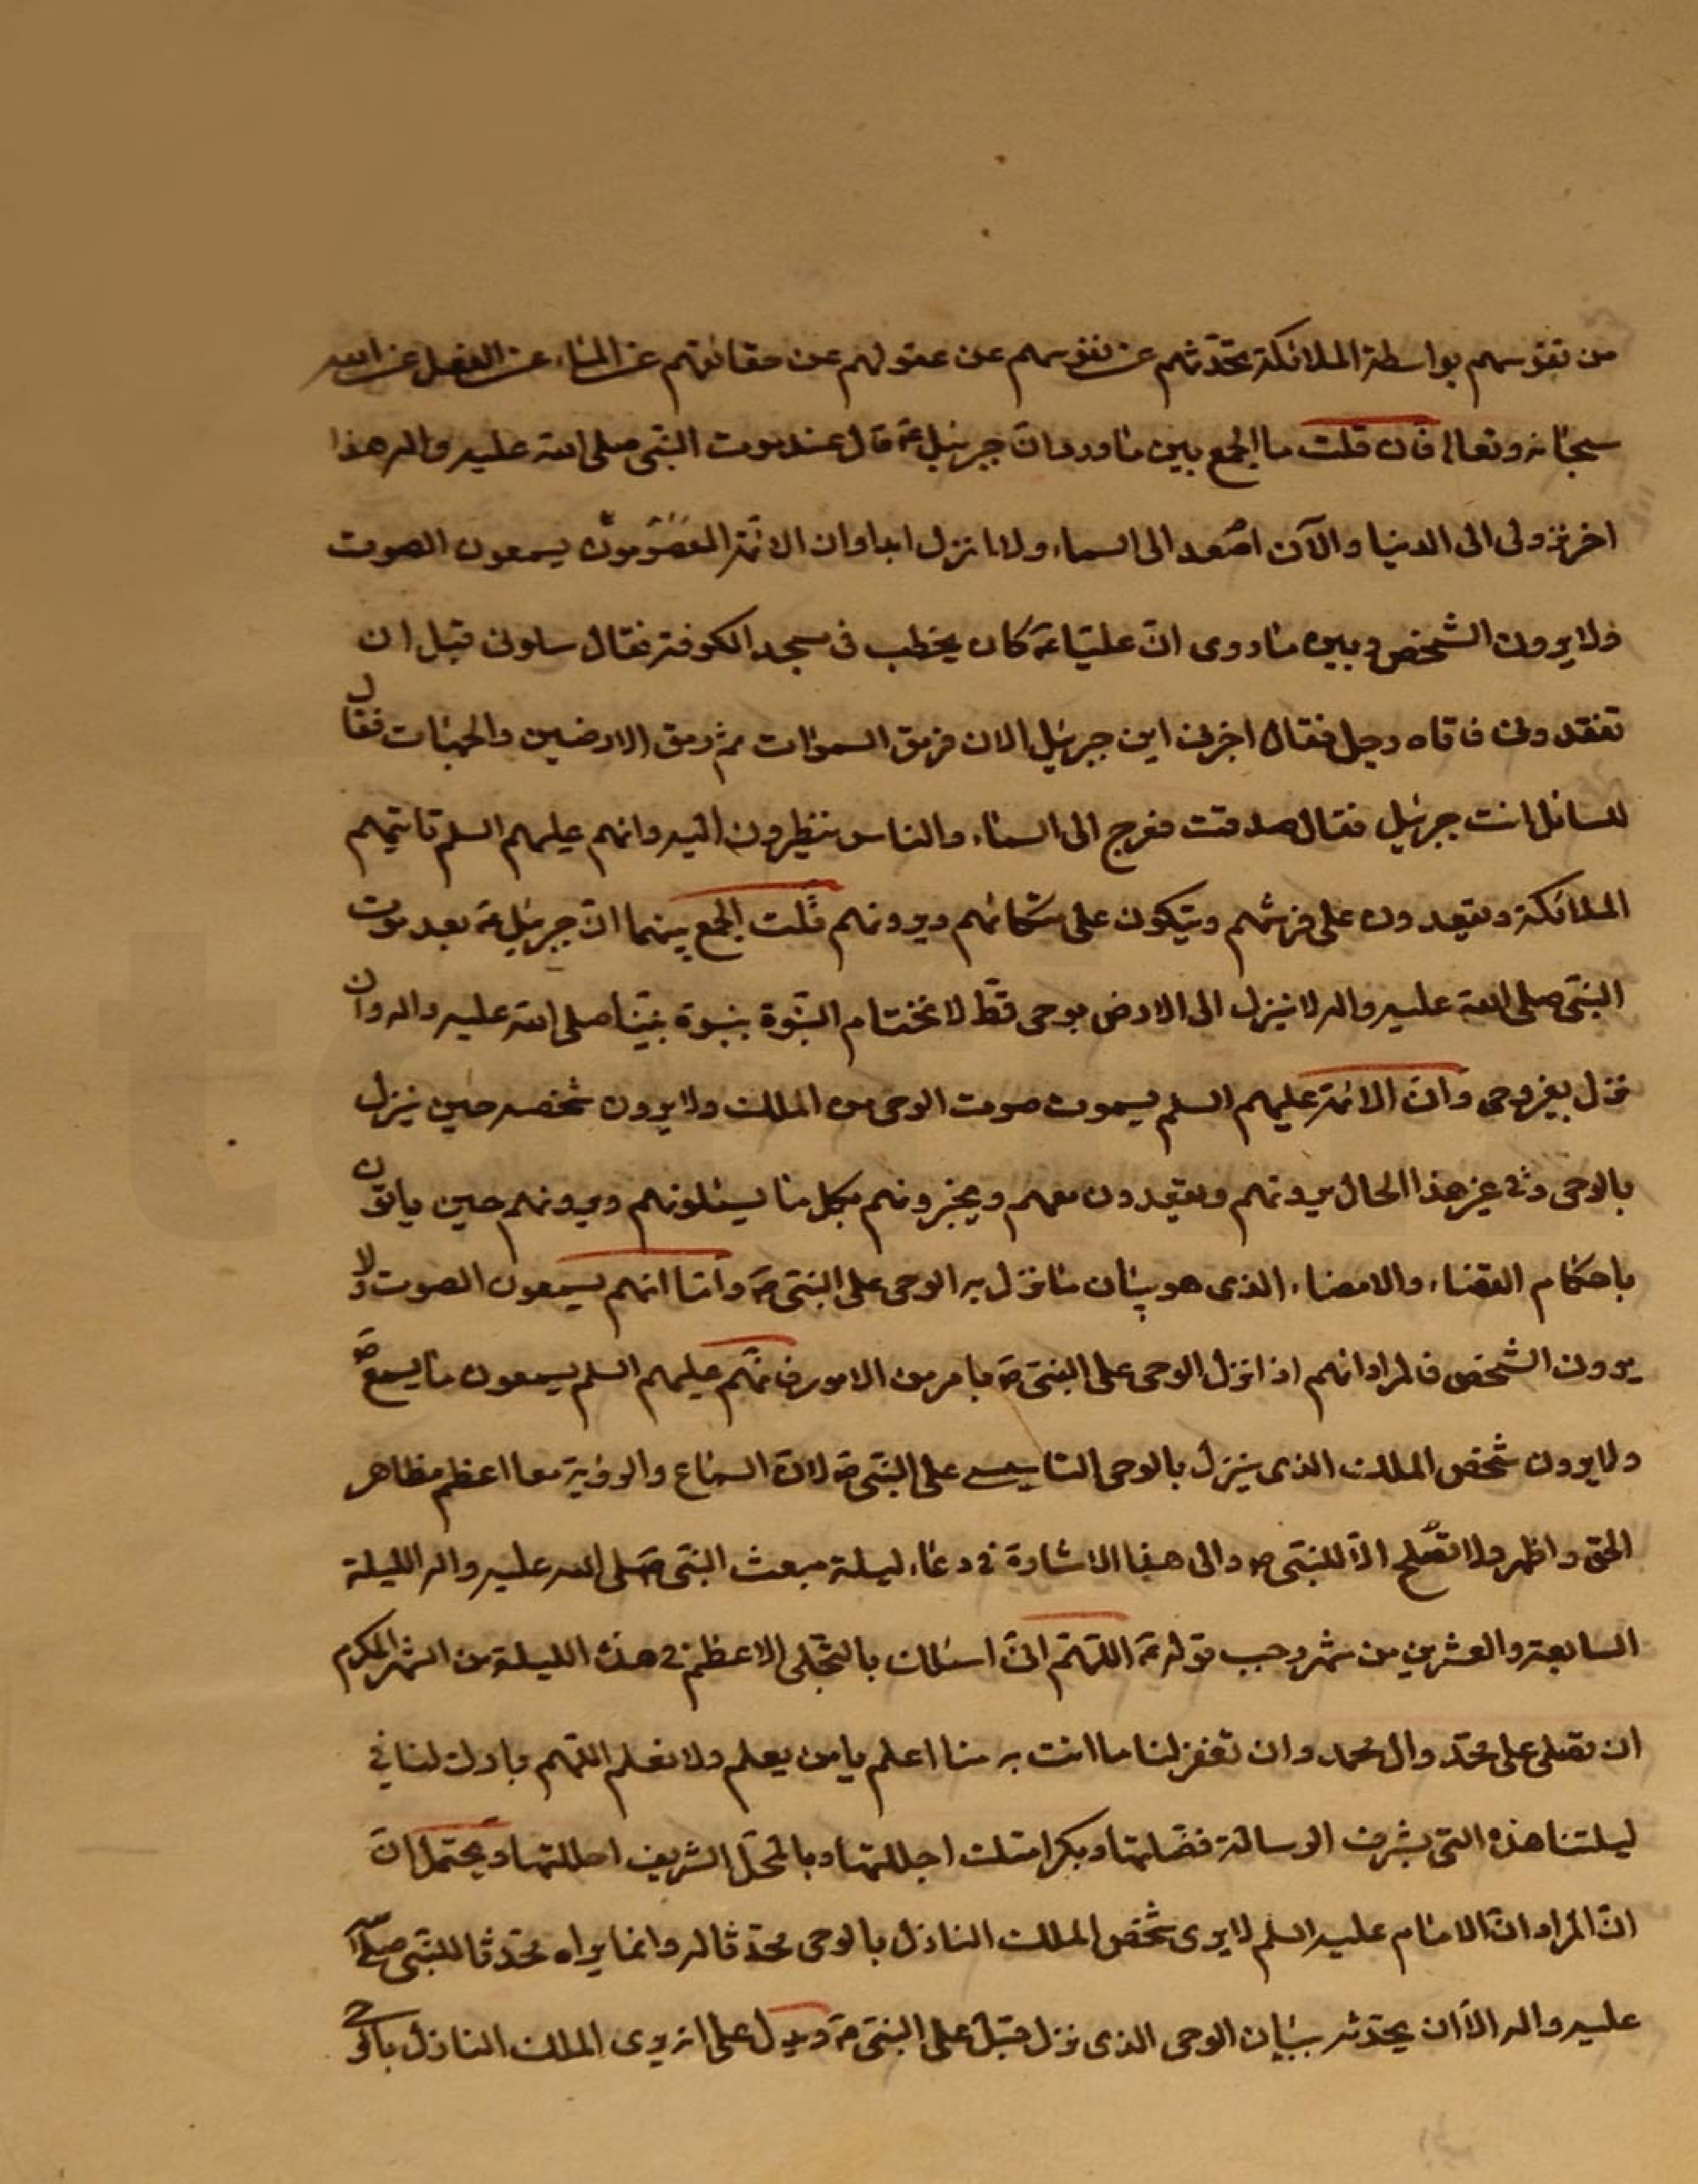 من نفوسهم بواسطة الملائكة تحدّثهم عن نفوسهم عن عقولهم عن حقائقهم عن الماء عن الفعل عن الله
سبحانه وتعالى فان قلت ما الجمع بين ما ورد انّ جبرئيل عۤ قال عند موت النبّى صلى الله عليه واله هذا
اخر نزولى الى الدنيا والآن اصعد الى السماء ولا انزل ابدا وان الائمّة المعصومون يسمعون الصوت
ولا يرون الشخص وبين ما روى انّ عليّا عۤ كان يخطب فى مسجد الكوفة فقال سلونى قبل ان
تفقدونى فاتاه رجل فقال اخبرنى اين جبرئيل الان فرمق السموات ثم رمق الارضين والجهات فقال
للسائل انت جبرئيل فقال صدقت فعرج الى السماء والناس ينظرون اليه وانهم عليهم السلم تاتيهم
الملائكة ويقعدون على فرشهم ويتكون على متكائهم ويرونهم قلت الجمع بينهما انّ جبرئيل عۤ بعد موت
النبّى صلى الله عليه واله لا ينزل الى الارض بوحى قطّ لاختتام النبّوة بنبوة نبيّنا صلى الله عليه واله وان
نزل بغير وحى وان الائمّة عليهم السلم يسمعون صوت الوحى من الملك ولا يرون شخصه حين ينزل
بالوحى وفى غير هذا الحال يرونهم ويقعدون معهم ويخبرونهم بكل ما يسئلونهم ويرونهم حين ياتون
باحكام القضاء والامضاء الذى هو بيان ما نزل به الوحى على النبّى صۤ وامّا انهم يسمعون الصوت ولا
يرون الشخص فالمراد انهم اذا نزل الوحى على النبّى صۤ بامر من الامور فانّهم عليهم السلم يسمعون ما يسمع صۤ
ولا يرون شخص الملك الذى ينزل بالوحى التاسيسے على النبّى صۤ لانّ السماع والرؤية معا اعظم مظاهر
الحق واظهر ولا تصلح الّا للنبّى صۤ والى هذا الاشارة فى دعاء ليلة مبعث النبّى صلى الله عليه واله الليلة
السابعة والعشرين من شهر رجب قوله عۤ اللّهمّ انّى اسئلك بالتجّلى الاعظم فى هذه الليلة من الشهر المكرم
ان تصلى على محمّد وال محمد وان تغفر لنا ما انت به منا اعلم يا من يعلم ولا نعلم اللّهم بارك لنا فى
ليلتنا هذه التى بشرف الرسالة فضّلتها وبكرامتك اجللتها وبالمحّل الشريف احللتها ويحتمل انّ
انّ المراد انّ الامام عليه السلم لا يرى شخص الملك النازل بالوحى محدّثا له وانما يراه محدّثا للنبّى صلى الله
عليه واله الّا ان يحدّثه ببيان الوحى الذى نزل قبل على النبّى صۤ ويدل على انه يرى الملك النازل بالوحى